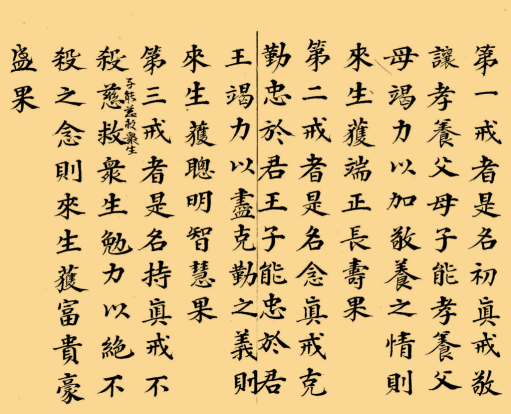 第一戒者是名初眞戒敬
讓孝養父母子能孝養父
母竭力以加敬養之情則
來生獲端正長壽果
第二戒者是名念眞戒克
勤忠於君王子能忠於君
王竭力以盡克勤之義則
來生獲聰明智慧果
第三戒者是名持眞戒不
子能慈救衆生
殺慈救衆生勉力以絶不
殺之念則來生獲富貴豪
盁果